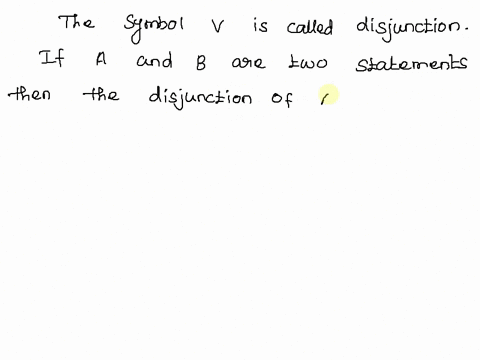 The Symbol V is called disjunction.
If A and B are two statements
then the disjunction of